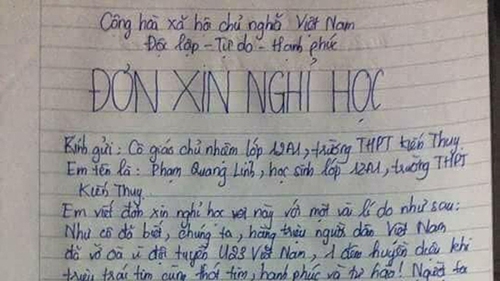 Cộng hòa xã hội chủ nghĩa Việt Nam
Độc lập - Tự do - Hạnh phúc
ĐƠN XIN NGHỈ HỌC
Kính gửi: Cô giáo chủ nhiệm lớp 12A1, trường THPT Kiến Thụy.
Em tên là: Phạm Quang Linh, học sinh lớp 12A1, trường THPT
Kiến Thụy.
Em viết đơn xin nghỉ học này với một vài lí do như sau:
Như cô đã biết, chúng ta, hàng triệu người dân Việt Nam
đã vỡ òa vì đội tuyển U23 Việt Nam, 1 đêm huyền diệu khi
triệu trái tim cùng thót tim, hạnh phúc và tự hào! Người ta